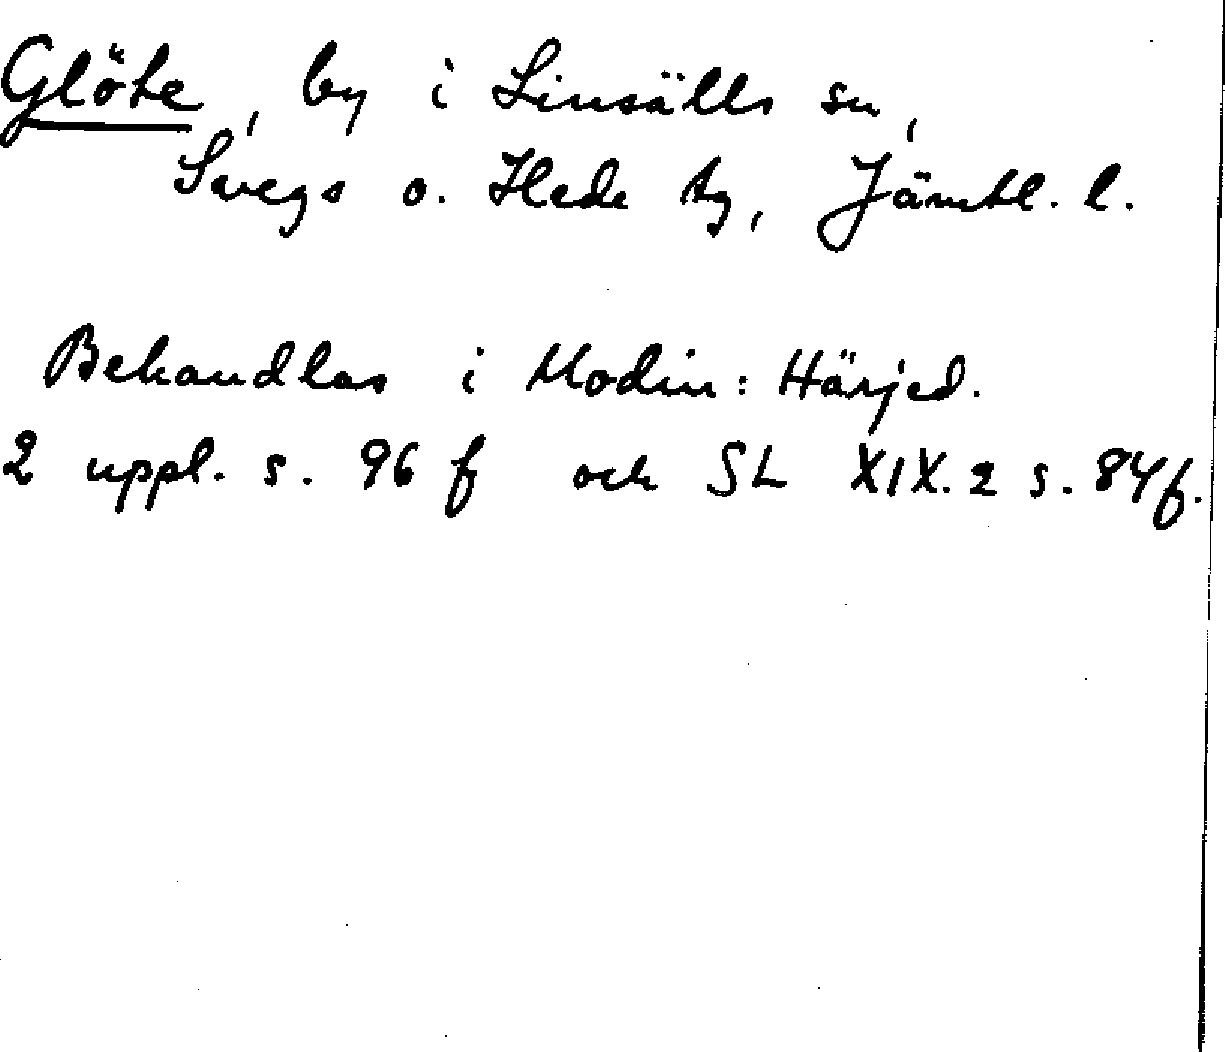 Glöte, by i Linsälls sn,
Svegs o. Hede tg, Jämtl. l.
Behandlas i Modin: Härjed.
2 uppl. s. 96 f och SL XIX.2 s. 84f.